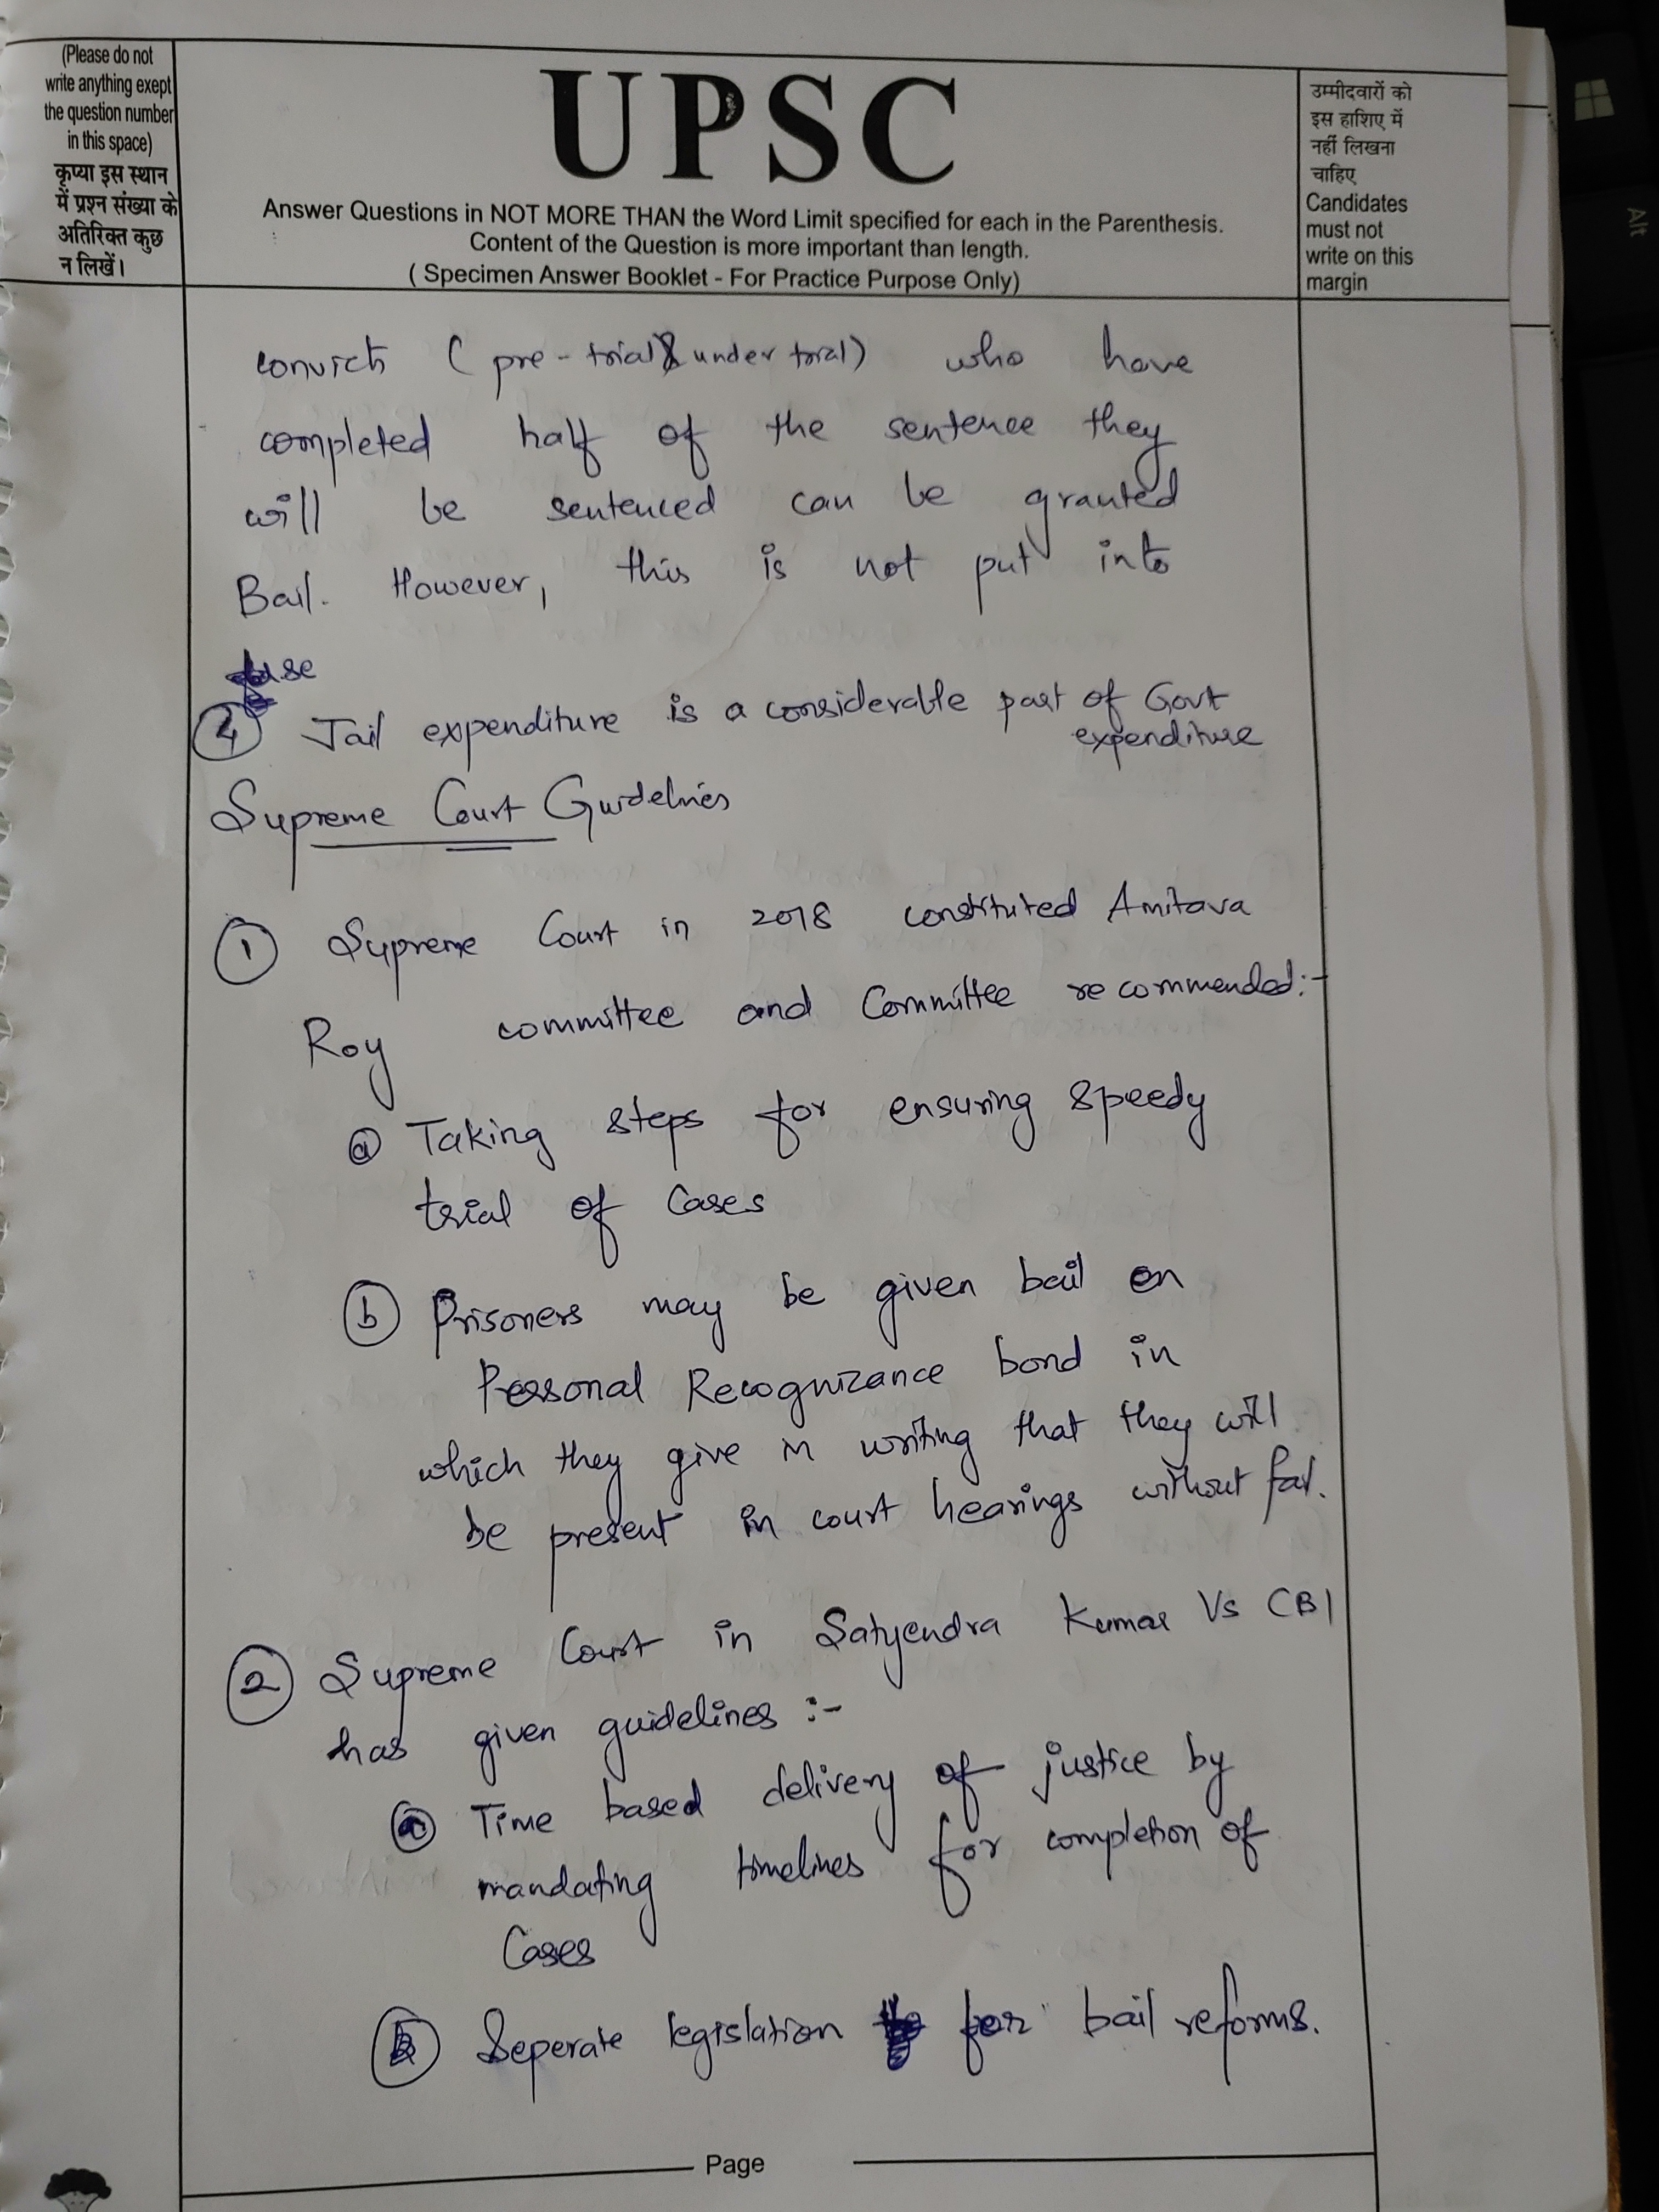 (Please do not
write anything exept
the question number
in this space)
कृप्या इस स्थान
में प्रश्न संख्या के
अतिरिक्त कुछ
न लिखें।
UPSC
Answer Questions in NOT MORE THAN the Word Limit specified for each in the Parenthesis.
Content of the Question is more important than length.
( Specimen Answer Booklet - For Practice Purpose Only)
उम्मीदवारों को
इस हाशिए में
नहीं लिखना
चाहिए
Candidates
must not
write on this
margin
Alt
convicts (pre-trial & under trial) who have
completed half of the sentence they
will be sentenced can be granted
Bail. However, this is not put into
use
4 Jail expenditure is a considerable part of Govt
expenditure
Supreme Court Guidelines
1 Supreme Court in 2018 constituted Amitava
Roy committee and Committee recommended:-
a Taking steps for ensuring speedy
trial of Cases
b Prisoners may be given bail on
Personal Recognizance bond in
which they give in writing that they will
be present in court hearings without fail.
2 Supreme Court in Satyendra Kumar Vs CBI
has given guidelines :-
a Time based delivery of justice by
mandating timelines for completion of
Cases
b Seperate legislation for bail reforms.
Page